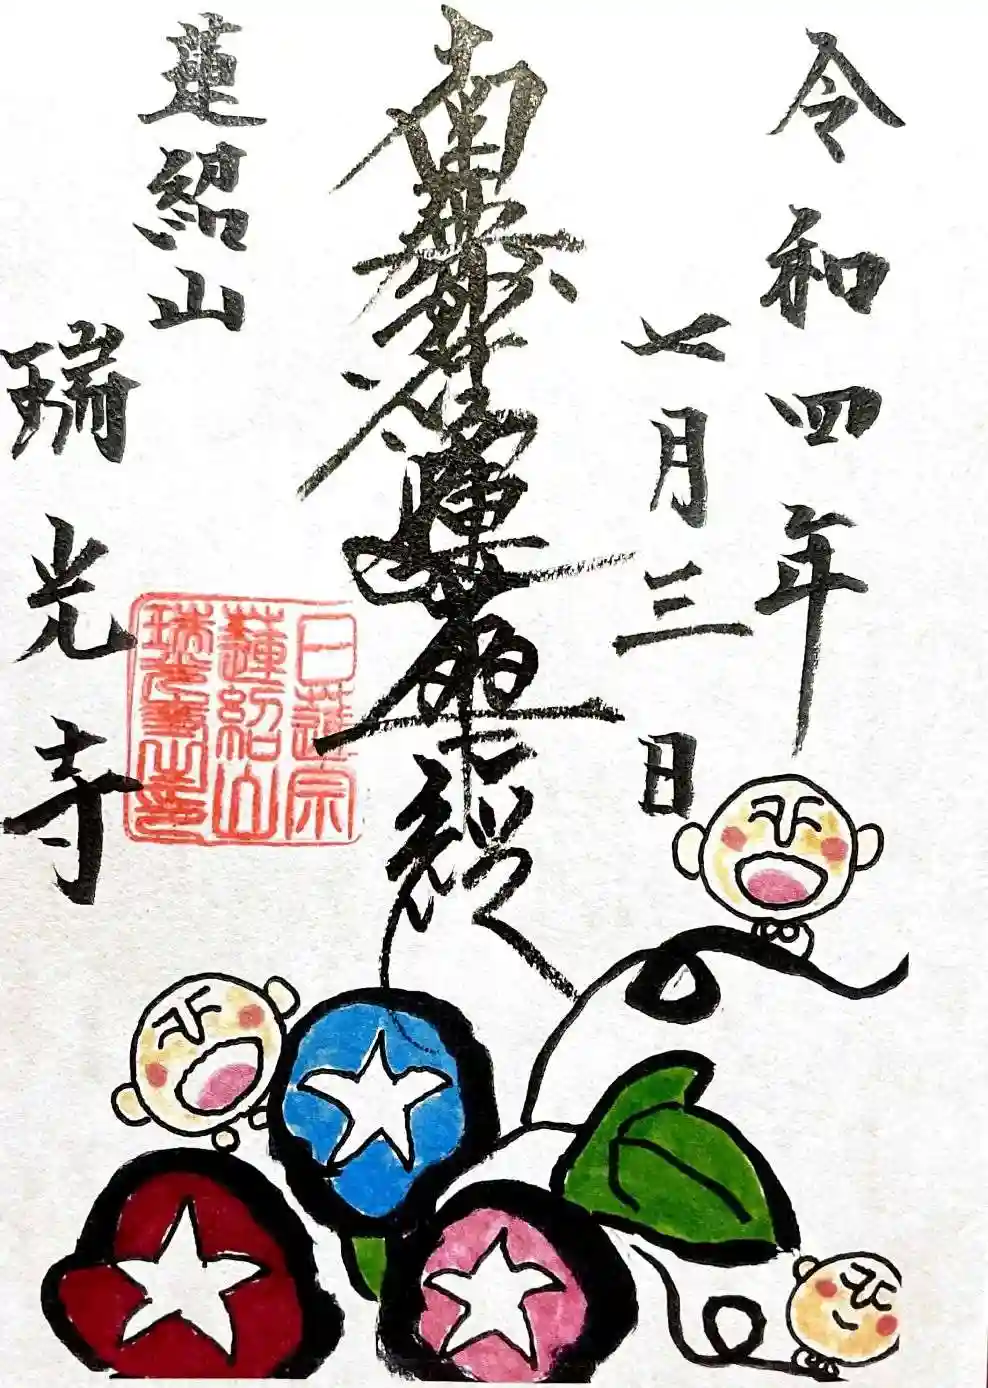 令和四年
七月三日
南無妙法蓮華経
蓮紹山
瑞光寺
日蓮宗
蓮紹山